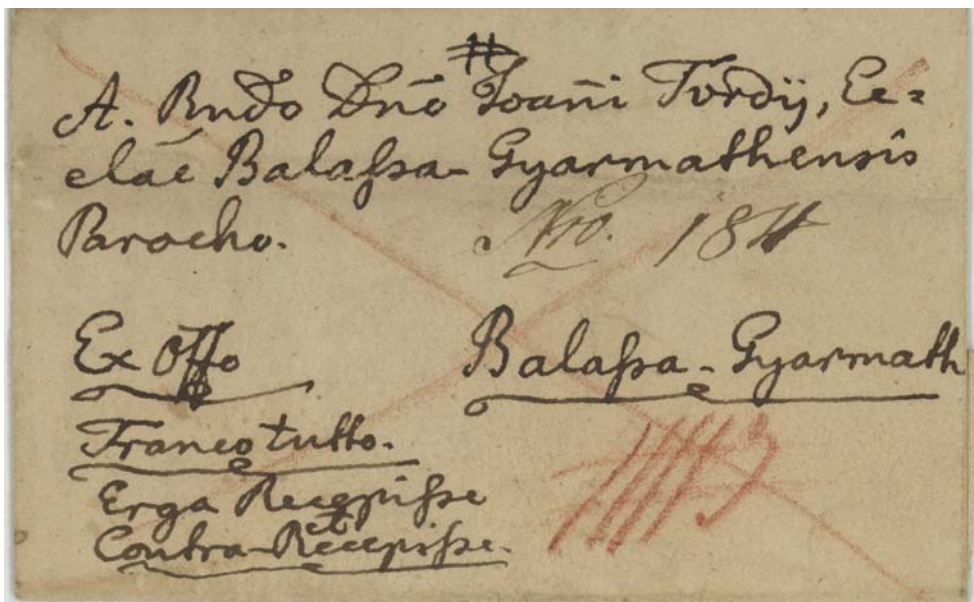 A. Rndo Dno Joañi Tordÿ, Ec=
clae Balaſsa-Gyarmathensis
Parocho.
Nro. 1811
Ex Offo
Balaſsa-Gyarmath
Franco tutto.
Erga Recepiſse
et
Contra-Recepiſse.